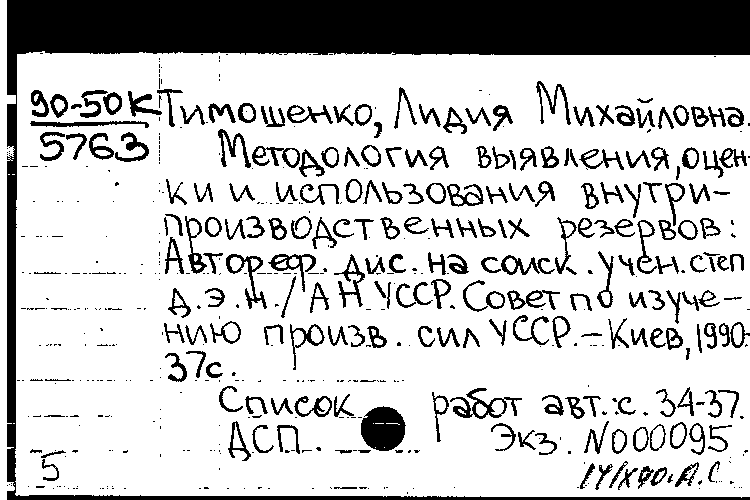 90-50К
5763
Тимошенко, Лидия Михайловна.
Методология выявления, оцен-
ки и использования внутри-
производственных резервов:
Автореф. дис. на соиск. учен. степ
д.э.н./АН УССР. Совет по изуче-
нию произв. сил УССР.-Киев, 1990-
37с.
Список работ авт.: с. 34-37.
ДСП. Экз. N000095
5